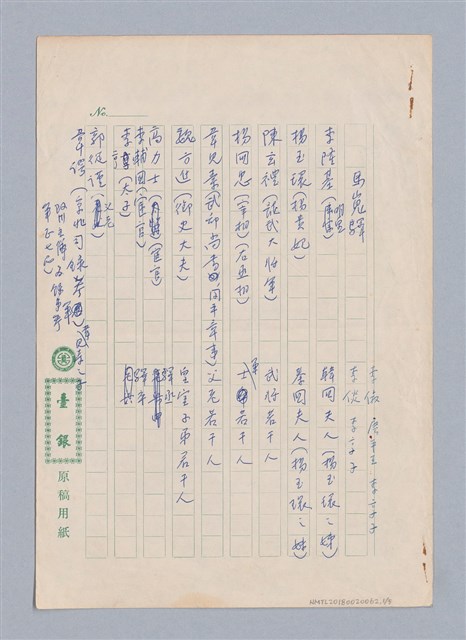 No.
馬嵬驛
李隆基(唐明皇)
楊玉環(楊貴妃)
陳玄禮(龍武大將軍)
楊國忠(宰相)(右丞相)
韋見素(武部尚書同平章事)
魏方進(御史大夫)
高力士(宦官)
李輔國(宦官)
李亨(太子)
郭從謹(父老)
韋諤(京兆司錄參軍)韋見素之子
李俶 廣平王 李亨子
李倓 李亨子
韓國夫人(楊玉環之姊)
秦國夫人(楊玉環之姊)
武將若干人
士軍若干人
父老若干人
皇室子弟若干人
驛丞
驛卒
臺銀
原稿用紙
NMTL20180020062